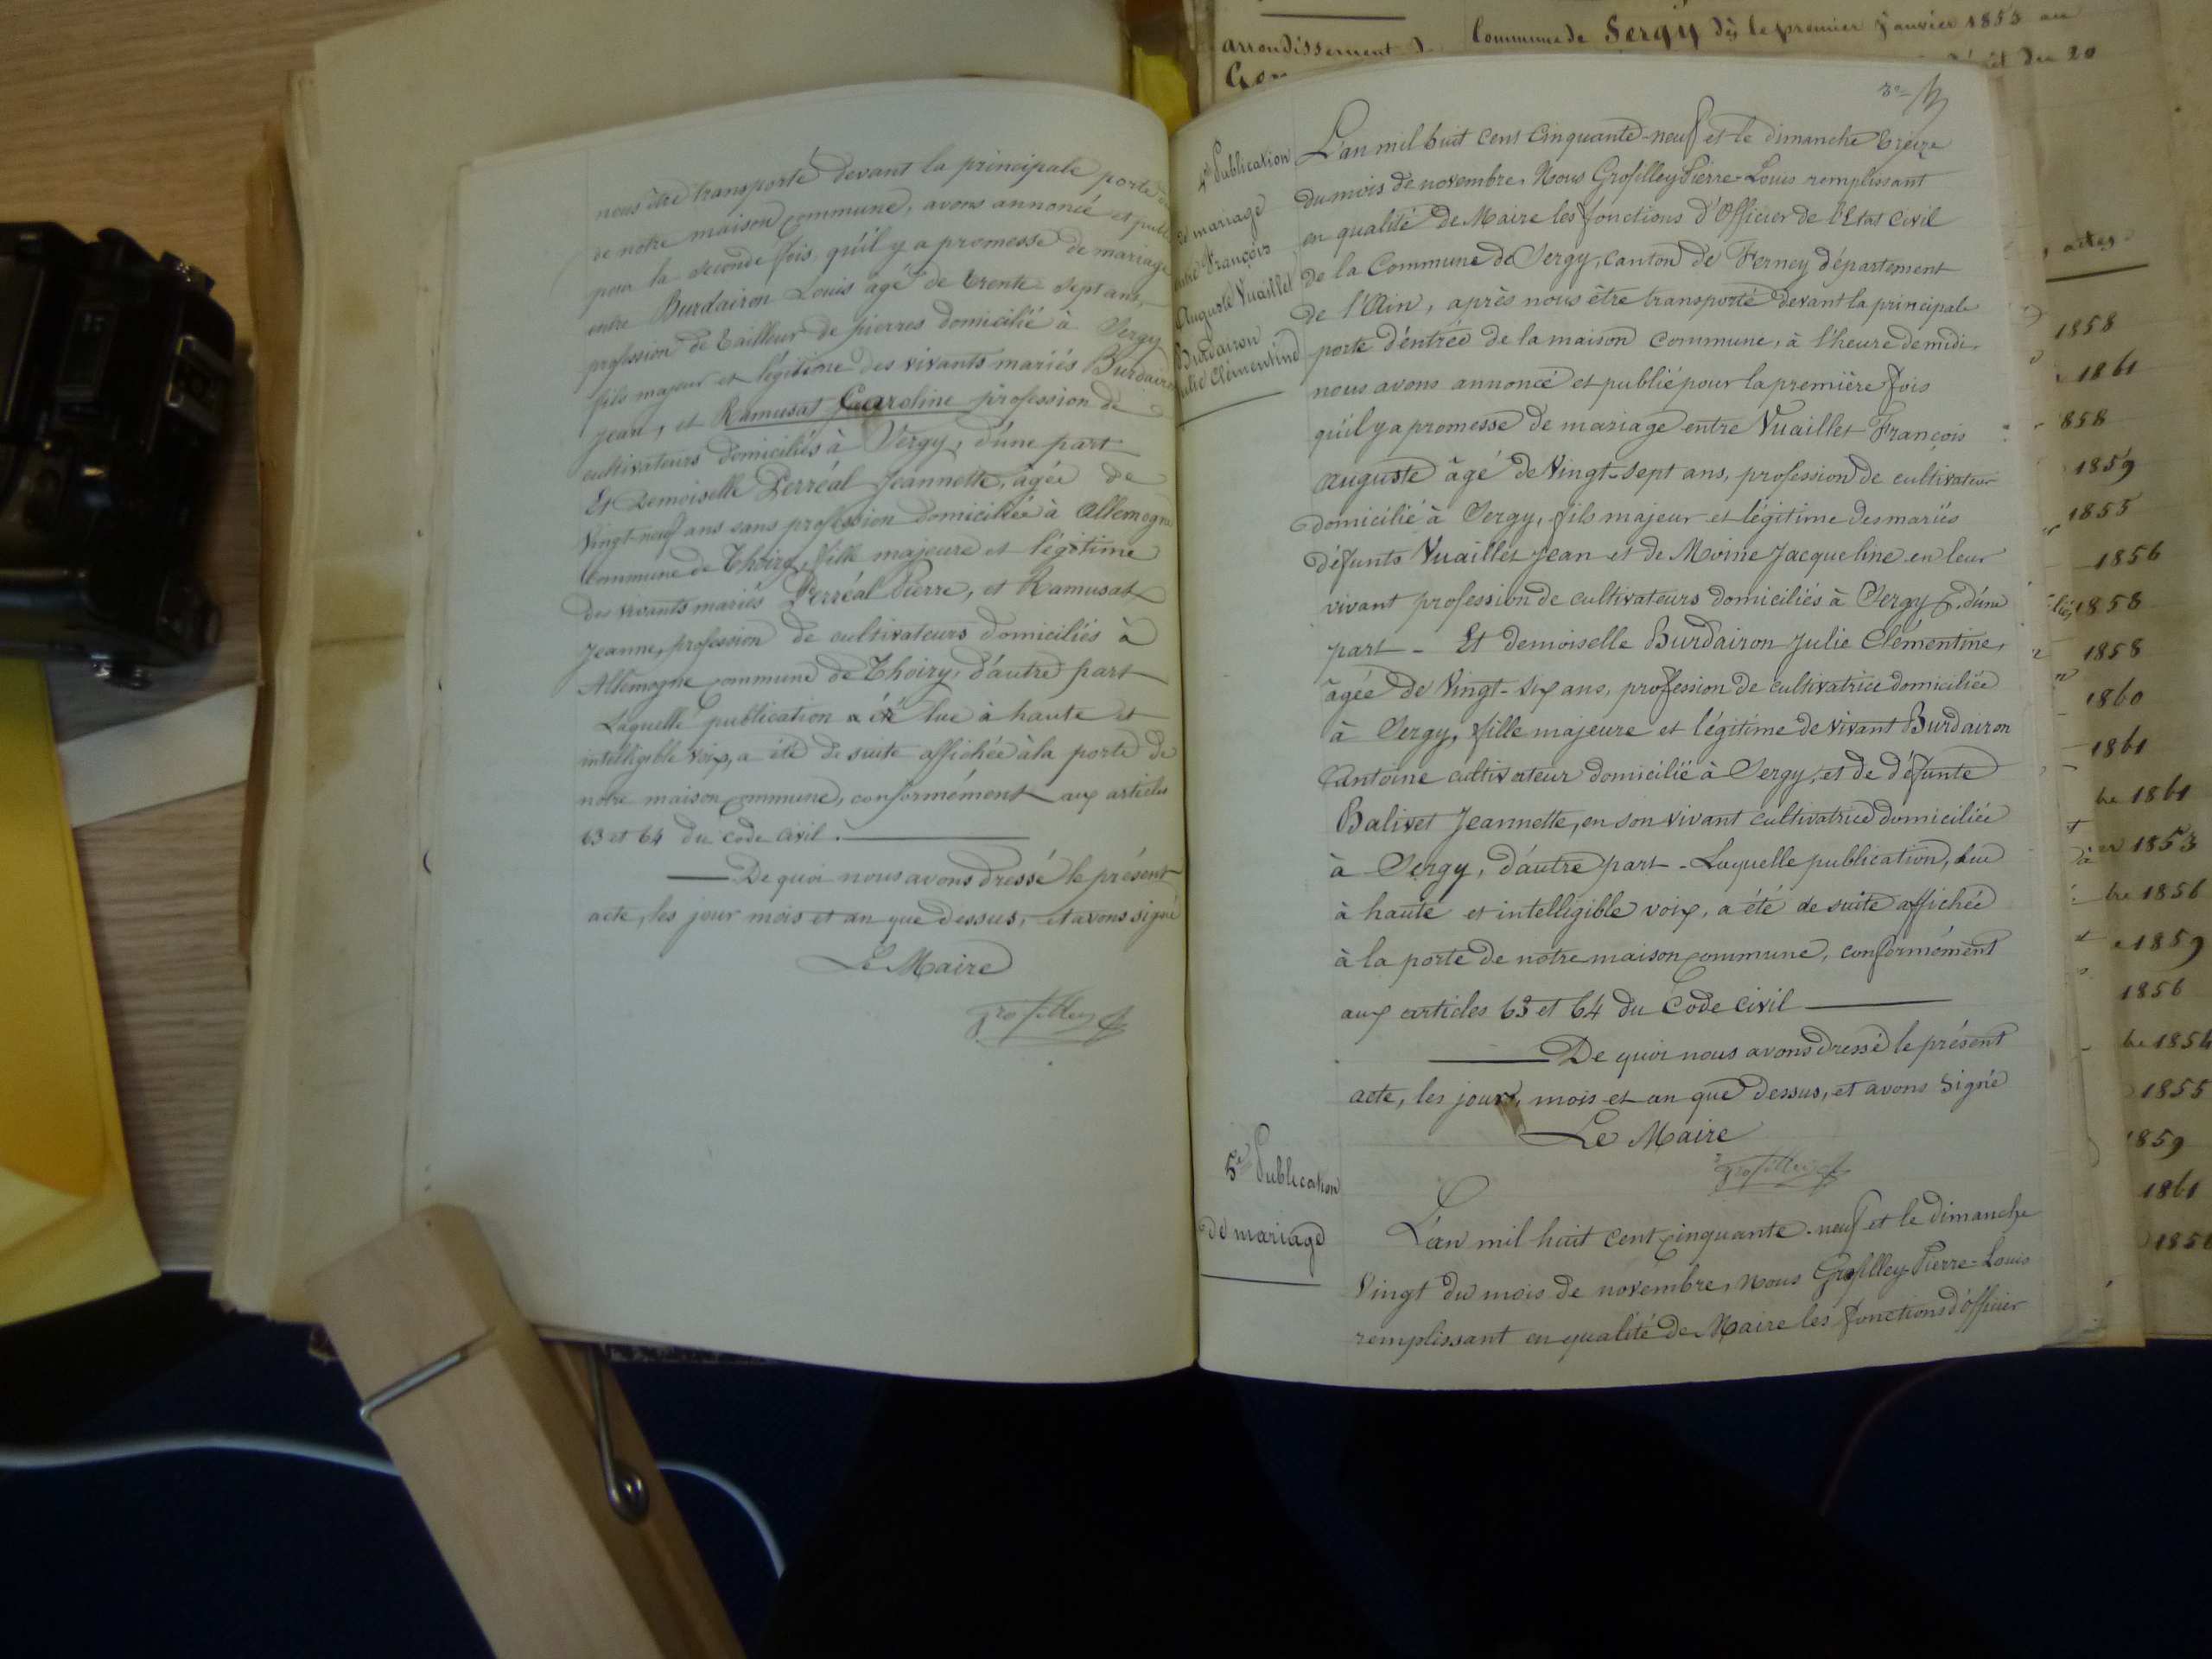 nous être transporté devant la principale porte
de notre maison commune, avons annoncé et publ
pour la seconde fois qu'il y a promesse de mariage
entre Burdairon Louis agé de trente-sept ans,
profession de tailleur de pierres domicilié à Sergy
fils majeur et légitime des vivants mariés Burdairon
Jean, et Ramusat Caroline profession de
cultivateurs domiciliés à Sergy, d'une part
Et Demoiselle Perréal Jeannette, agée de
Vingt-neuf ans sans profession domiciliée à Allemogne
Commune de Thoiry, fille majeure et légitime
des vivants mariés Perréal Pierre, et Ramusat
Jeanne, profession de cultivateurs domiciliés à
Allemogne commune de Thoiry, d'autre part
Laquelle publication a été lue à haute et
intelligible voix, a été de suite affichée à la porte de
notre maison commune, conformément aux articles
63 et 64 du Code civil.
De quoi nous avons dressé le présent
acte, les jour mois et an que dessus, et avons signé
Le Maire
Grosfilley
arrondissement d
Commune de Sergy dès le premier janvier 1853 au
du 20
3e
4e Publication
de mariage
entre François
Auguste Vuaillet
Burdairon
Julie Clémentine
L'an mil huit cent cinquante-neuf et le dimanche treize
du mois de novembre, Nous Grosfilley Pierre-Louis remplissant
en qualité de Maire les fonctions d'Officier de l'Etat Civil
de la Commune de Sergy, Canton de Ferney département
de l'Ain, après nous être transporté devant la principale
porte d'entrée de la maison commune, à l'heure de midi,
nous avons annoncé et publié pour la première fois
qu'il y a promesse de mariage entre Vuaillet François
Auguste âgé de Vingt-sept ans, profession de cultivateur
domicilié à Sergy, fils majeur et légitime des mariés
défunts Vuaillet Jean et de Moine Jacqueline en leur
vivant profession de cultivateurs domiciliés à Sergy, d'une
part - Et demoiselle Burdairon Julie Clémentine,
âgée de Vingt-six ans, profession de cultivatrice domiciliée
à Sergy, fille majeure et légitime de vivant Burdairon
Antoine cultivateur domicilié à Sergy, et de défunte
Balivet Jeannette, en son vivant cultivatrice domiciliée
à Sergy, d'autre part - Laquelle publication, lue
à haute et intelligible voix, a été de suite affichée
à la porte de notre maison commune, conformément
aux articles 63 et 64 du Code civil
De quoi nous avons dressé le présent
acte, les jour, mois et an que dessus, et avons signé
Le Maire
Grosfilley
5e Publication
de mariage
L'an mil huit cent cinquante-neuf et le dimanche
Vingt du mois de novembre, Nous Grosfilley Pierre-Louis
remplissant en qualité de Maire les fonctions d'officier
actes
1858
1861
858
1859
1855
1856
1858
1858
1860
1861
bre 1861
1853
bre 1856
1859
1856
bre 1854
1855
1859
1861